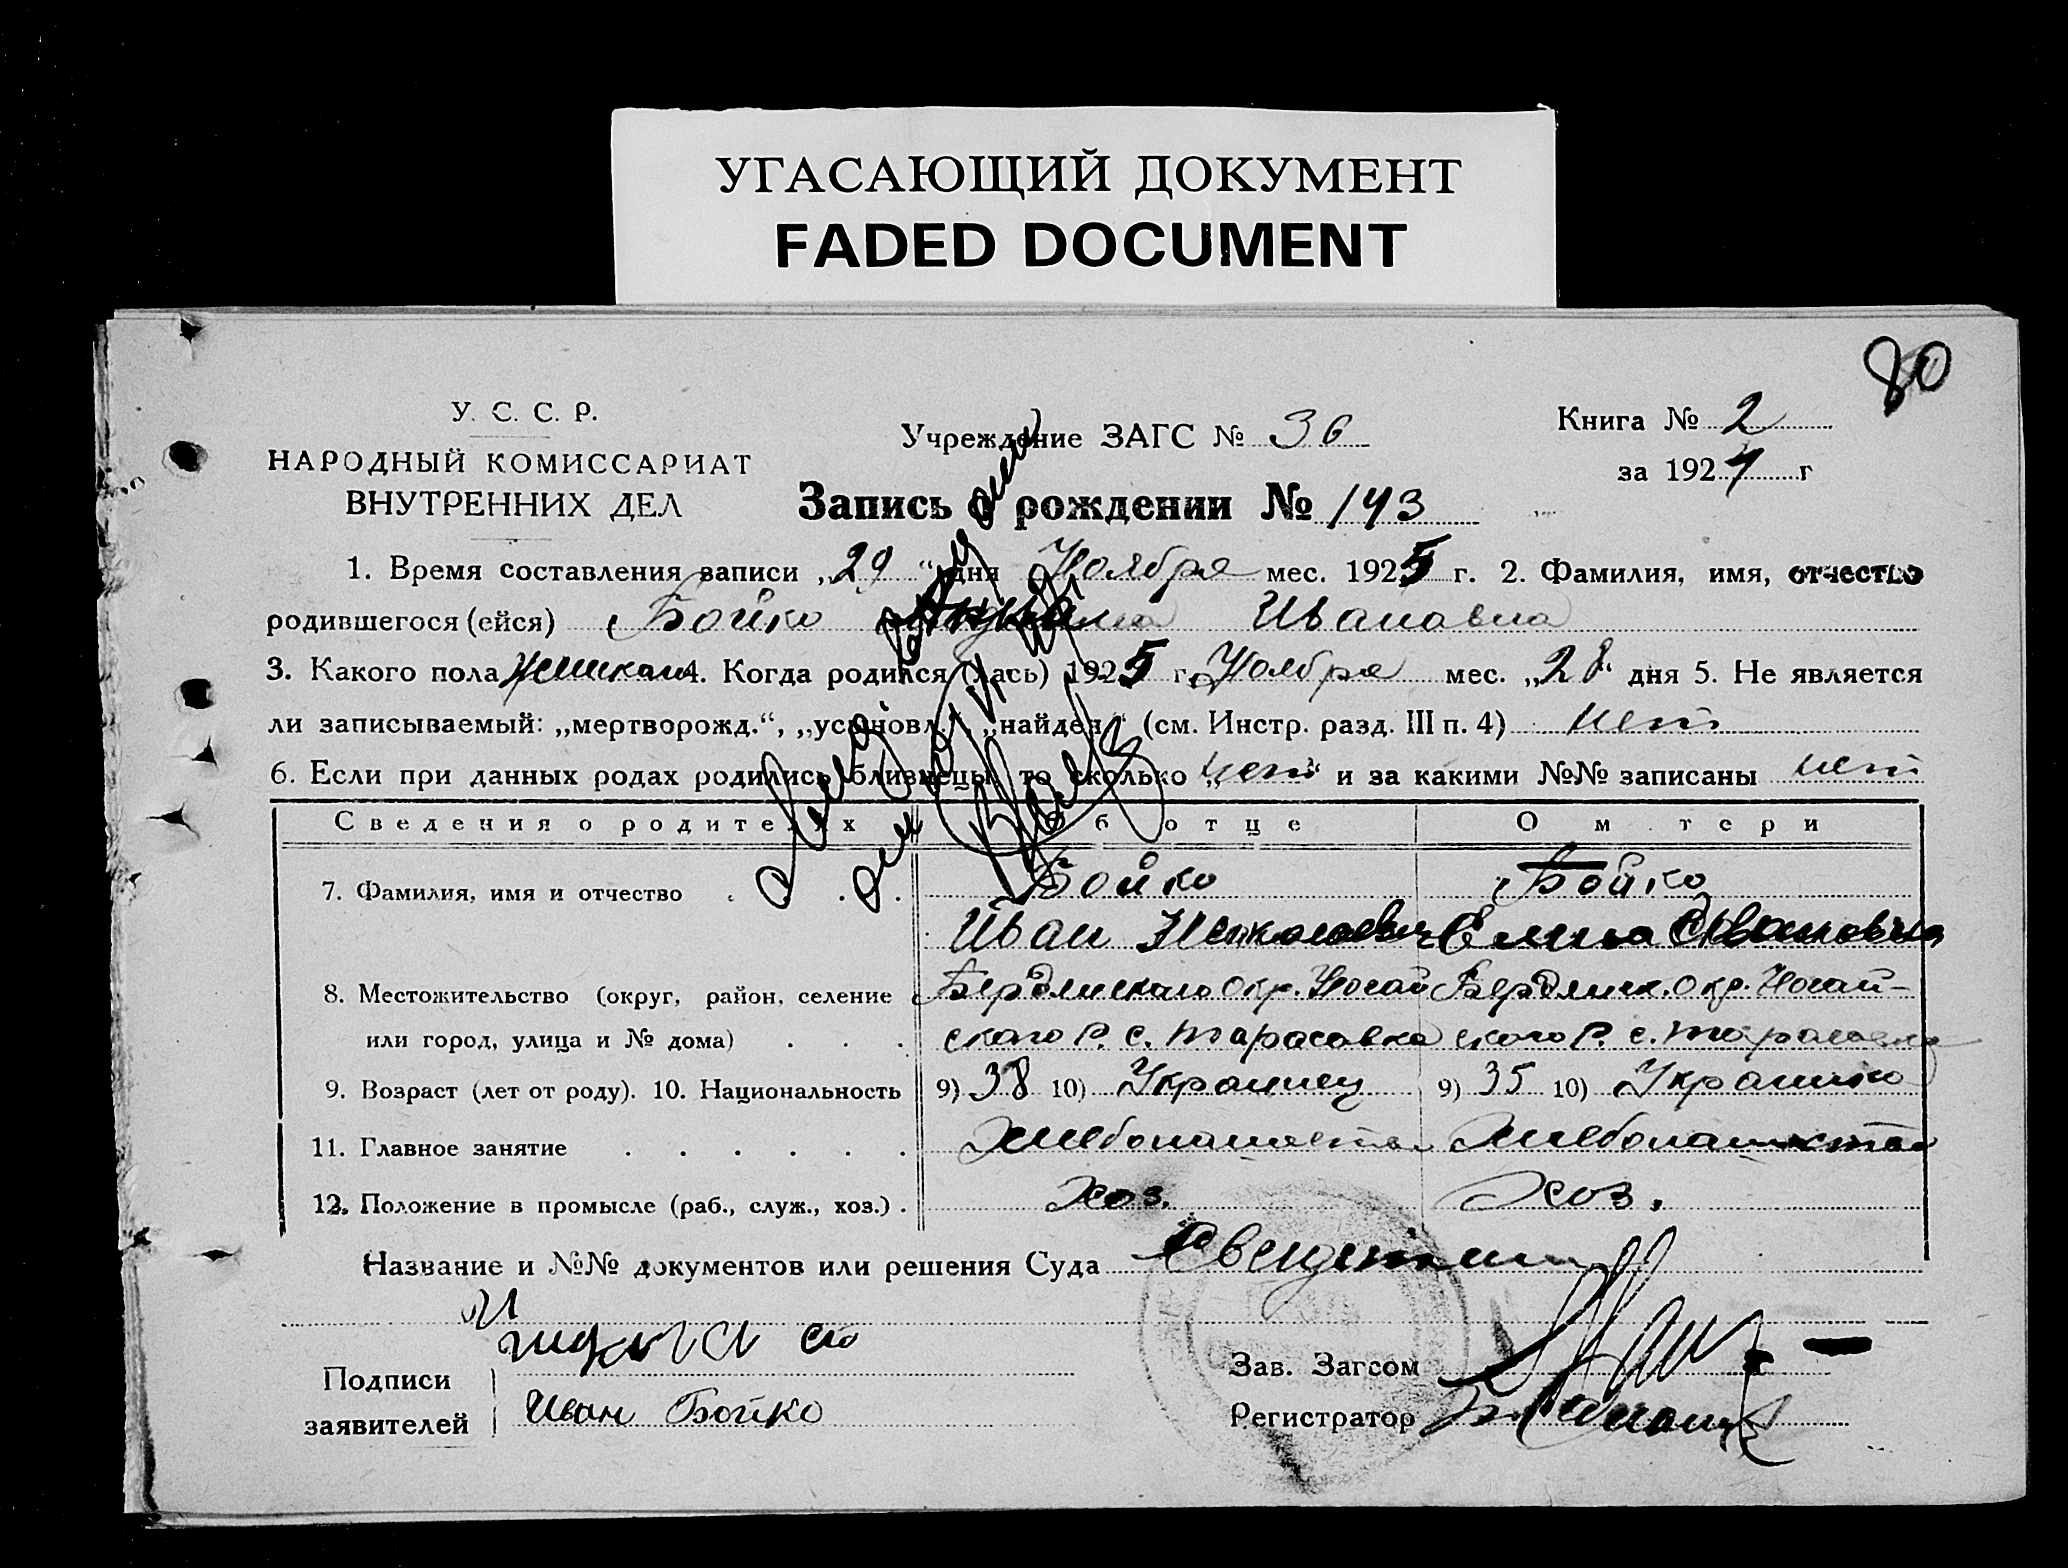 УГАСАЮЩИЙ ДОКУМЕНТ
FADED DOCUMENT
80
У. С. С. Р.
НАРОДНЫЙ КОМИССАРИАТ
ВНУТРЕННИХ ДЕЛ
Учреждение ЗАГС № 36
Книга № 2
за 192 г
Запись о рождении № 143
1. Время составления записи „29“ дня Ноября мес. 1925 г. 2. Фамилия, имя, отчество
родившегося (ейся) Бойко Ивановна
3. Какого пола 4. Когда родился (лась) 1925 г. Ноября мес. „28“ дня 5. Не является
ли записываемый: „мертворожд.“, „установл.“, „найден“ (см. Инстр. разд. III п. 4) нет
6. Если при данных родах родились близнецы, то сколько „нет“ и за какими №№ записаны нет
Сведения о родителях Об отце О матери
7. Фамилия, имя и отчество Бойко Бойко
Иван Николаевич Елена Ивановна
8. Местожительство (округ, район, селение Бердянского Окр. Ногай Бердянск. Окр. Ногай-
или город, улица и № дома) ского Р. с. Тарасовка ского Р. с. Тарасовка
9. Возраст (лет от роду). 10. Национальность 9) 38 10) Украинец 9) 35 10) Украинка
11. Главное занятие Хлебопашество Хлебопашество
12. Положение в промысле (раб., служ., хоз.) Хоз. Хоз.
Название и №№ документов или решения Суда
Подписи
заявителей Иван Бойко
Зав. Загсом
Регистратор